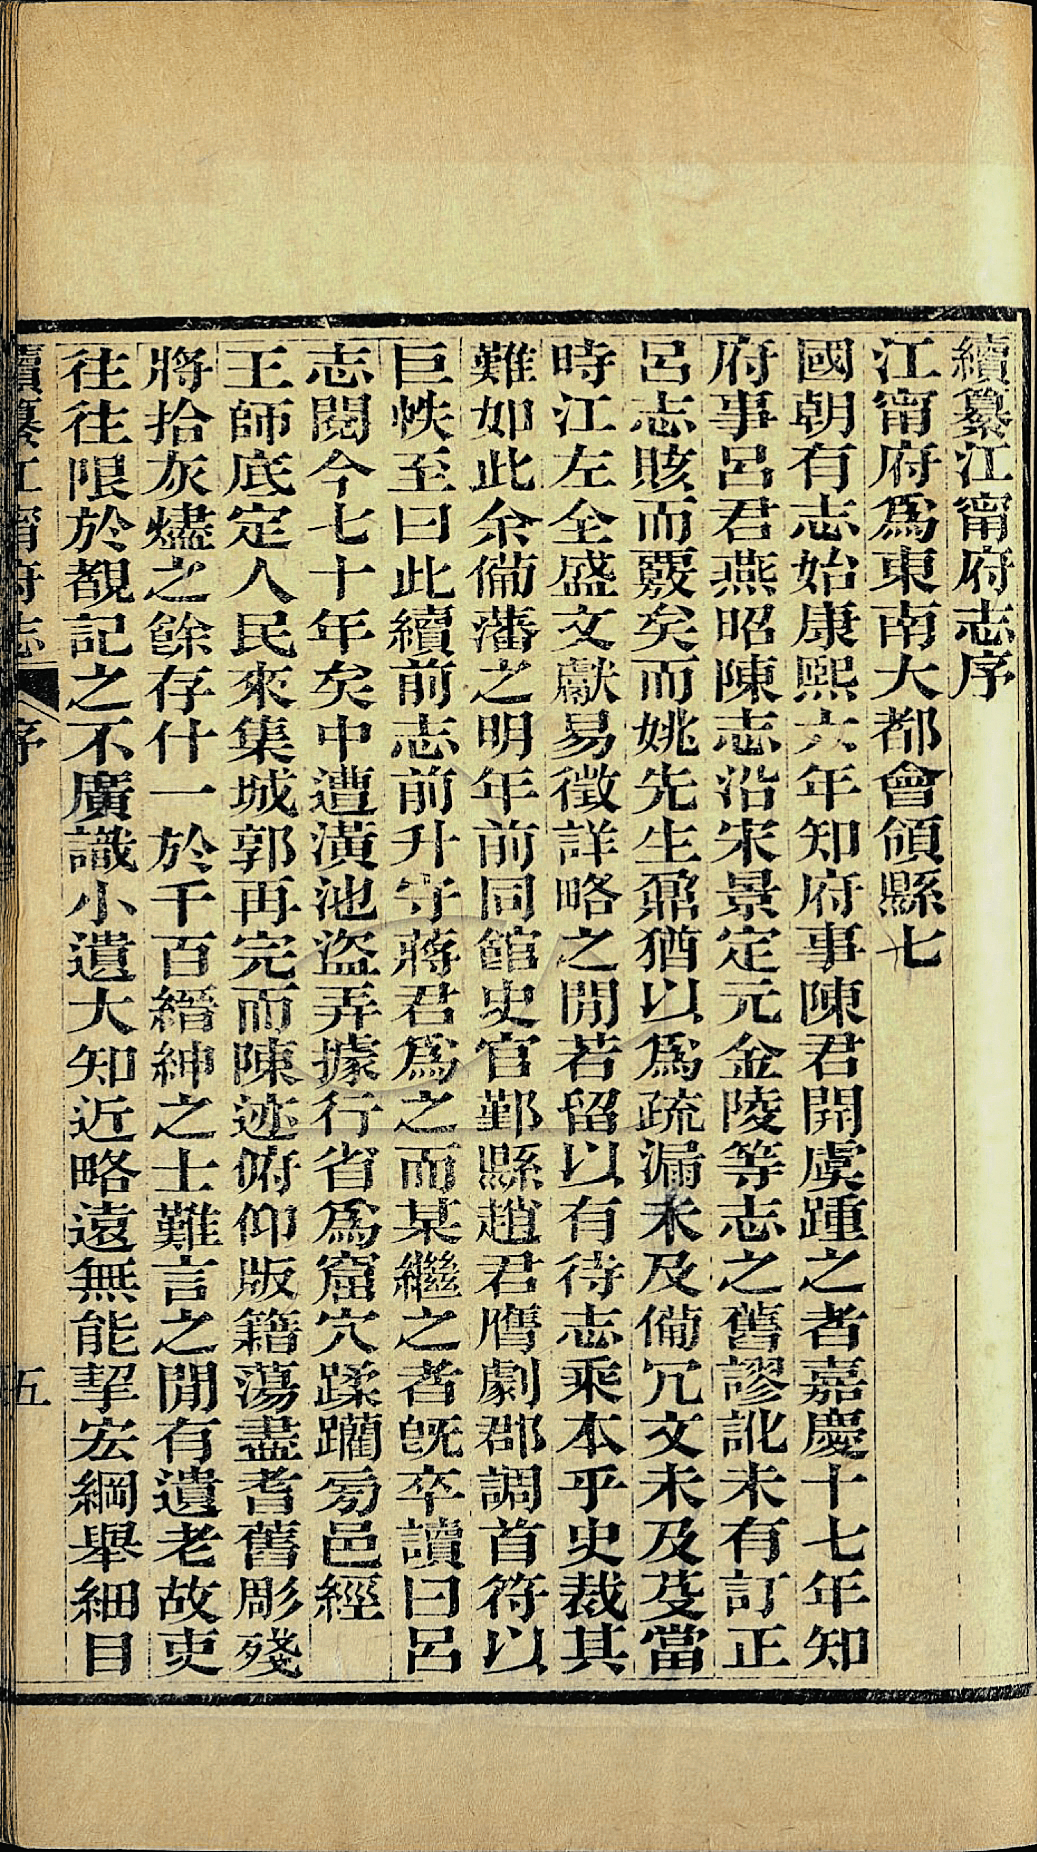 續纂江甯府志序
江甯府爲東南大都會領縣七
國朝有志始康熙六年知府事陳君開虞踵之者嘉慶十七年知
府事呂君燕昭陳志沿宋景定元金陵等志之舊謬訛未有訂正
呂志賅而覈矣而姚先生鼐猶以爲疏漏未及備冗文未及芟當
時江左全盛文獻易徵詳略之閒若留以有待志乘本乎史裁其
難如此余備藩之明年前同館史官鄞縣趙君膺劇郡調首符以
巨帙至曰此續前志前升守蔣君爲之而某繼之者旣卒讀曰呂
志閱今七十年矣中遭潢池盜弄據行省爲窟穴蹂躪旁邑經
王師底定人民來集城郭再完而陳迹俯仰版籍蕩盡耆舊彫殘
將拾灰燼之餘存什一於千百縉紳之士難言之閒有遺老故吏
往往限於覩記之不廣識小遺大知近略遠無能挈宏綱舉細目
續纂江甯府志 序 五